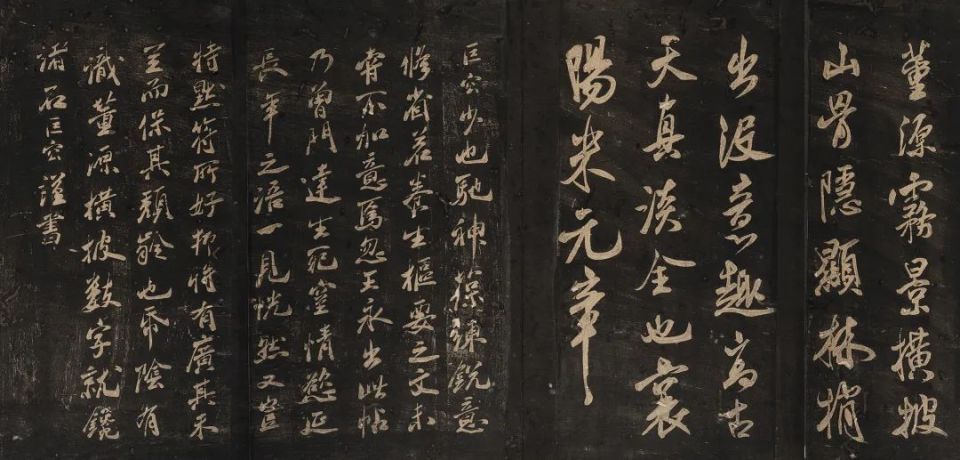 董源霧景橫披
山骨隱顯林梢
出沒意趣高古
天真淡全也襄
陽米元章
巨容少也馳神操練銳意
修省若養生樞要之文未
嘗不加意焉忽王永出此帖
乃曾門達生死窒情慾延
長年之語一見恍然又豈
特默符所好抑將有廣其未
至而保其頹齡也帋陰有
識董源橫披數字就鐫
諸石巨容謹書